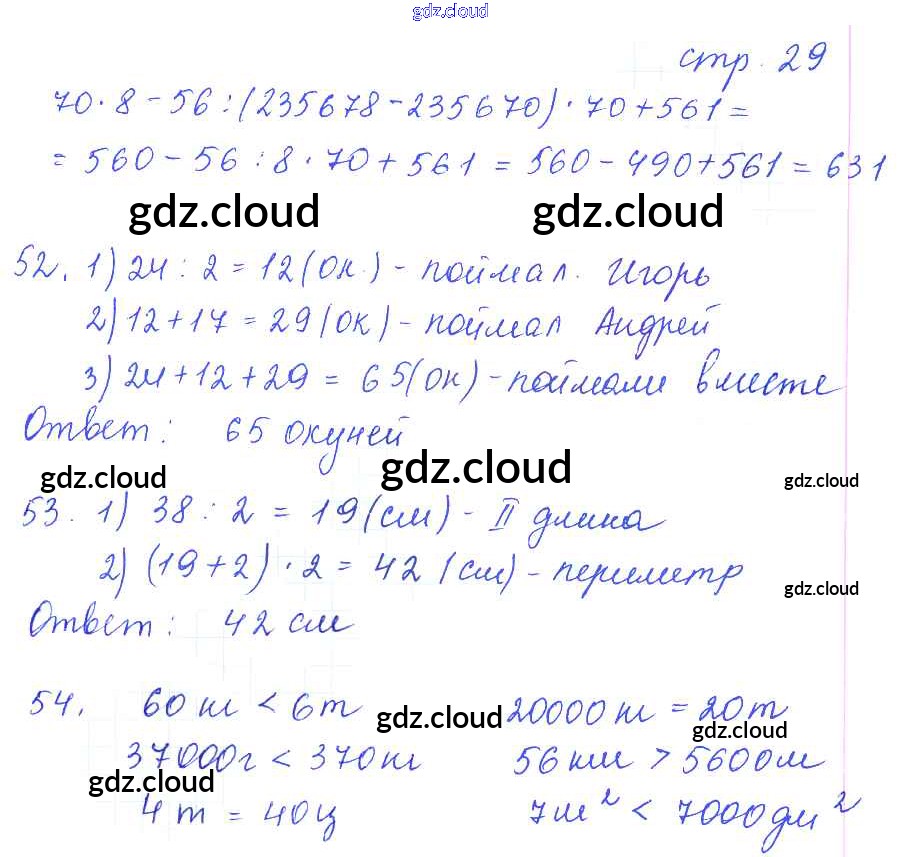 gdz.cloud
стр. 29
70·8-56:(235678-235670)·70+561=
=560-56:8·70+561=560-490+561=631
gdz.cloud gdz.cloud
52. 1) 24:2=12(ок.)-поймал. Игорь
2) 12+17=29(ок)-поймал Андрей
3) 24+12+29=65(ок)-поймали вместе
Ответ: 65 окуней
gdz.cloud gdz.cloud gdz.cloud
53. 1) 38:2=19(см)-II длина
2) (19+2)·2=42(см)-периметр
gdz.cloud
Ответ: 42 см
54. 60 кг < 6 т 20000 кг = 20 т
gdz.cloud gdz.cloud
37000г < 370 кг 56 км > 5600 м
gdz.cloud
4 т = 40 ц 7 м² < 7000 дм²